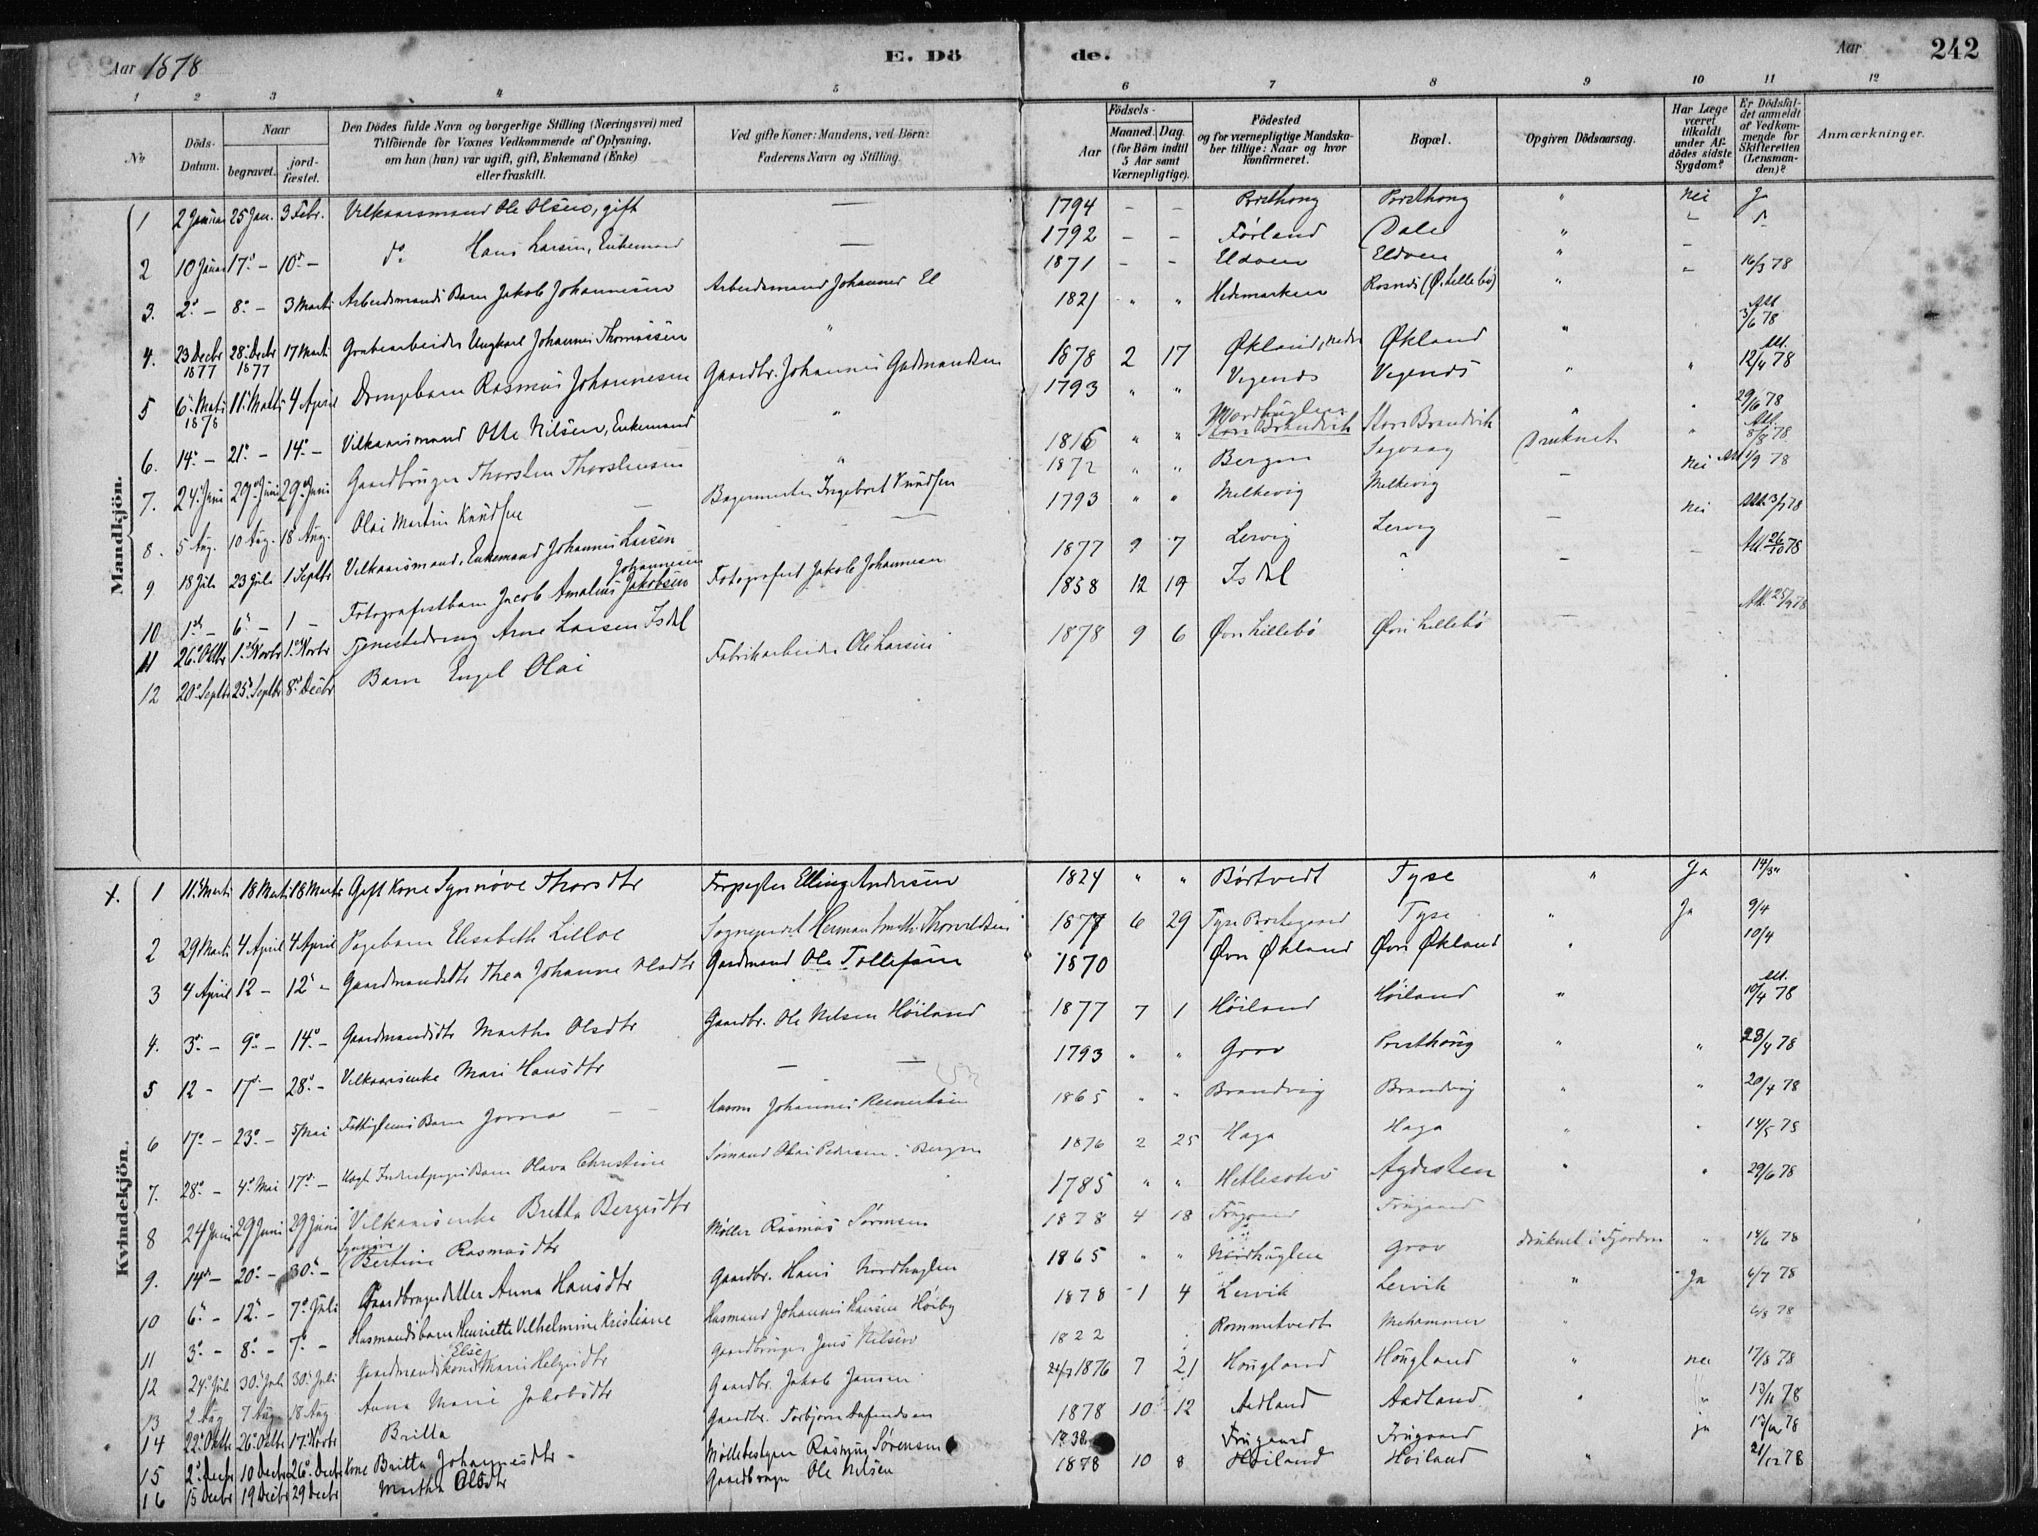 Aar 1878
E. Dö
de.
Aar
242
1 2 3 4 5 6 7 8 9 10 11 12
No
Döds-Datum.
Naar
begravet.
jord-fæstet.
Den Dödes fulde Navn og borgerlige Stilling (Næringsvei) med
Tilföiende for Voxnes Vedkommende af Oplysning,
om han (hun) var ugift, gift, Enkemand (Enke)
eller fraskilt.
Ved gifte Koner: Mandens, ved Börn:
Faderens Navn og Stilling.
Födsels-
Aar
Maaned. Dag.
(for Börn indtil
5 Aar samt
Værnepligtige).
Födested
og for værnepligtige Mandska-
ber tillige: Naar og hvor
konfirmeret.
Bopæl.
Opgiven Dödsaarsag.
Har Læge
været
tilkaldt
under Af-
dödes sidste
Sygdom?
Er Dödsfal-
det anmeldt
af Vedkom-
mende for
Skifteretten
(Lensman-
den)?
Anmærkninger.
Mandkjön.
1 2 Januar 25 Jan. 3 Febr. Vilkaarsmand Ole Olsen, gift — 1794 – – " nei Ja
2 10 Januar 17 – 10 – do Hans Larsen, Enkemand — 1792 – – Førland Dale "
3. 2 – 8 – 3 Marts Arbeidsmands Barn Jakob Johannesen Arbeidsmand Johannes El 1871 – – Eldøen Eldøen " 16/3 78
4. 23 Decbr 1877 28 Decbr 1877 17 Marts Grubearbeider Ungkarl Johannes Thomassen " 1821 " " Hedemarken (Ø. Lillebø) " Att. 3/6 78
5 6 Marts 1878 11 Marts 4 April Drengebarn Rasmus Johannesen Gaardbr. Johannes Gudmundsen 1878 2 17 Økland, nedre Økland " Att. 12/4 78
6. 14 – 21 – 14 – Vilkaarsmand Otte Nilsen, Enkemand " 1793 " " Vegends Vegends " " 29/6 78
7. 24 Juni 29 Juni 29 Juni Gaardbruger Thorsten Thorstensen " 1816 " " Nordhuglen Store Brandvik Store Brandvik " Att. 8/8 78
8. 5 Aug. 10 Aug. 18 Aug. Olai Martin Knudsen Bagermester Ingebret Knudsen 1872 " " Bergen Sagvaag Druknet nei Att 1/9 78
9 18 Juli 23 Juli 1 Septbr Vilkaarsmand, Enkemand Johannes Larsen — 1793 " " Melkevig Melkevig — nei
10 1 – 6 – 1 – Fotografistbarn Jacob Amalius Jakobsen Johannesen Fotografist Jakob Johannesen 1877 9 7 Lervig Lervig — – Att 26/10 78
11 26 Oktbr 1 Novbr 1 Novbr Tjenestedreng Arne Larsen Isdal 1838 12 19 Isdal —
12 20 Septbr 25 Septbr 8 Decbr Barn Engel Olai Fabrikarbeider Ole Larsen 1878 9 6 Øvre Lillebø Øvre Lillebø —
Kvindekjön.
1 11 Marts 18 Marts 18 Marts Gift Kone Synnøve Thorsdtr Forpagter Elling Andersen 1824 " " Børtvedt Tyse " Ja
2 29 Marts 4 April 4 April Pigebarn Elisabeth Lilloe Sogneprest Herman Smith Thorvaldsen 1877 6 29 Tyse Tyse " Ja 9/4
3 4 April 12 – 12 – Gaardmandsdtr Thea Johanne Olsdtr Gaardmand Ole Tollefsen 1870 Øvre Økland Øvre Økland " 10/4
4. 3 – 9 – 14 – Gaardmandsdtr Martha Olsdtr Gaardbr. Ole Nilsen Høiland 1877 7 1 Høiland Høiland " Att. 10/4 78
5 12 – 17 – 28 – Vilkaarsenke Mari Hansdtr — — 1793 " " Grov " " 28/4 78
6 17 – 23 – 5 Mai Barn Johannes 1865 " " Brandvig Brandvig " " 20/4 78
7. 28 – 4 Mai 17 – Barn Olava Christine Sømand Olai Pedersen i Bergen 1876 2 25 Haga Haga " " 14/5 78
8 24 Juni 29 Juni 29 Juni Vilkaarsenke Britta Bergesdtr 1785 " " Agdesten " " 29/6 78
9. 14 – 20 – 30 – Synnøve Bertine Rasmusdtr Møller Rasmus Sørensen 1878 4 18 Frugaard Frugaard
10 6 – 12 – 7 Juli Gaardbrugerdatter Anna Hansdtr Gaardbr. Hans Nordhuglen 1865 " " Nordhuglen Grov druknet i Fjorden " 14/6 78
11 3 – 8 – 7 – Husmandsbarn Henriette Vilhelmine Kristiane Husmand Johannes Hansen Høiby 1878 1 4 Lervik Lervik " Ja 6/7 78
12 24 Juli 30 Juli 30 Juli Gaardmandskone Else Marie Helgesdtr Gaardbruger Jens Nilsen 1822 Rommetvedt Mehammer "
13 2 Aug 7 Aug 18 Aug Anna Marie Jakobsdtr Gaardbr. Jakob Jansen 1876 7 21 Hougland Hougland " nei 17/8 78
14 22 Oktbr 26 Oktbr 17 Novbr Britta Gaardbr. Torbjørn 1878 10 12 Aadland Aadland " " 13/11 78
15 2 Decbr 10 Decbr 26 Decbr Kone Britta Johannesdtr Møllebestyrer Rasmus Sørensen 1838 Frugaard Frugaard ja
16 15 Decbr 19 Decbr 29 Decbr Martha Olsdtr Gaardbruger Ole Nilsen 1878 10 8 Høiland Høiland " 21/12 78